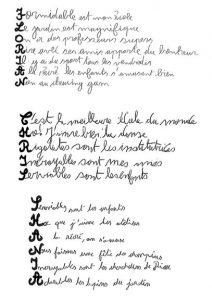 Formidable est mon école
Le jardin est magnifique
On a des professeurs supers
Rire avec ses amis apporte du bonheur
Il y a de sport tous les vendredis
A la récré les enfants s'amusent bien
Non au chewing gum
C'est la meilleure école du monde
Ho! J'aime bien la danse
Rigolotes sont les institutrices
Incroyables sont mes amis
Serviables sont les enfants
Serviables sont les enfants
Ha que j'aime les ateliers
A la récré, on s'amuse
Nous faisons une fête des
Incroyables sont les
Adorables les lapins du jardin